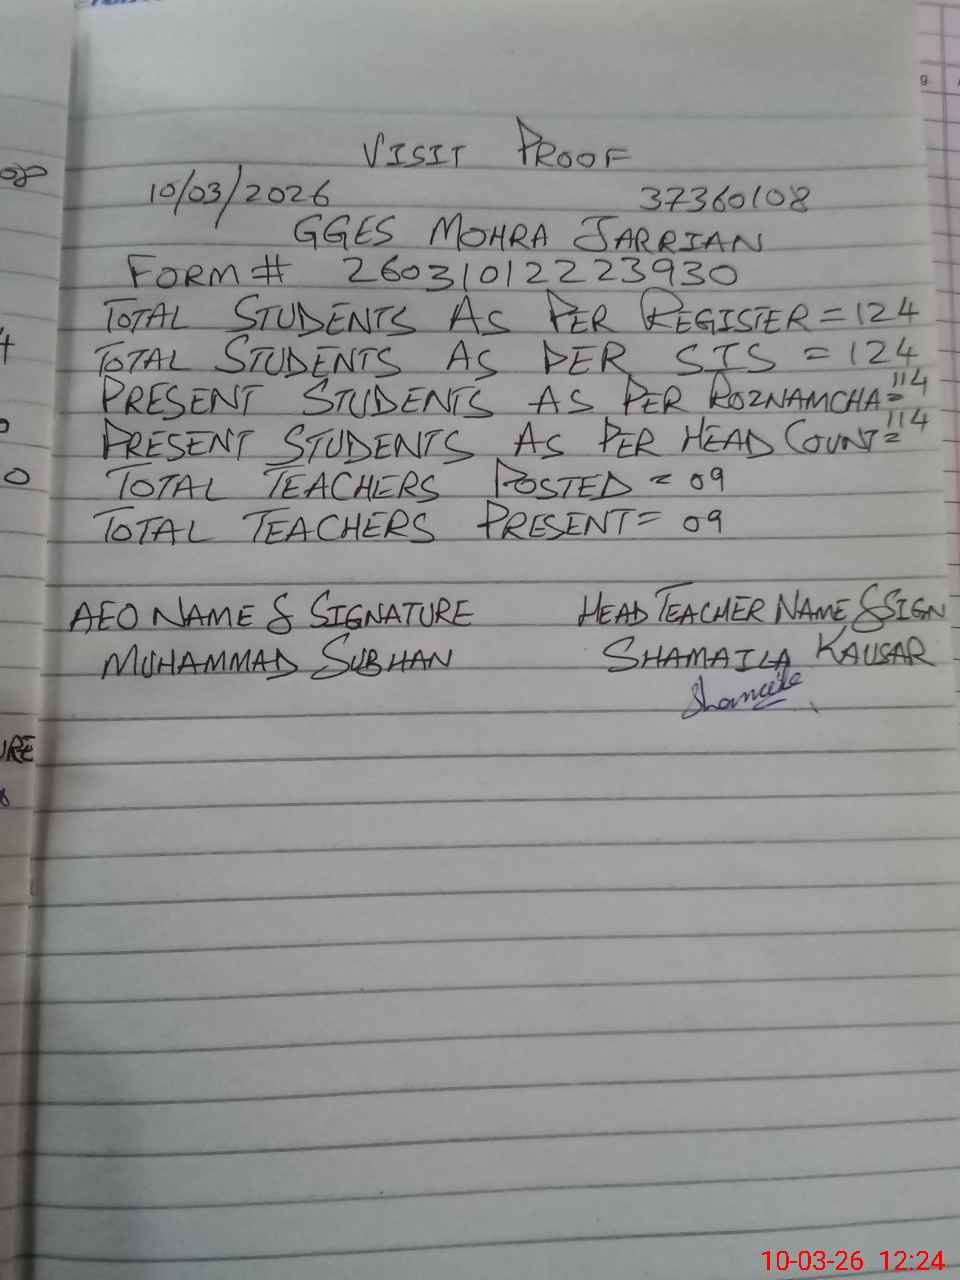 VISIT PROOF
10/03/2026 37360108
GGES MOHRA JARRIAN
FORM # 260310122223930
TOTAL STUDENTS AS PER REGISTER = 124
TOTAL STUDENTS AS PER SIS = 124
PRESENT STUDENTS AS PER ROZNAMCHA = 114
PRESENT STUDENTS AS PER HEAD COUNT = 114
TOTAL TEACHERS POSTED = 09
TOTAL TEACHERS PRESENT = 09
AEO NAME & SIGNATURE HEAD TEACHER NAME & SIGN
MUHAMMAD SUBHAN SHAMAILA KAUSAR
Shamaila
10-03-26 12:24